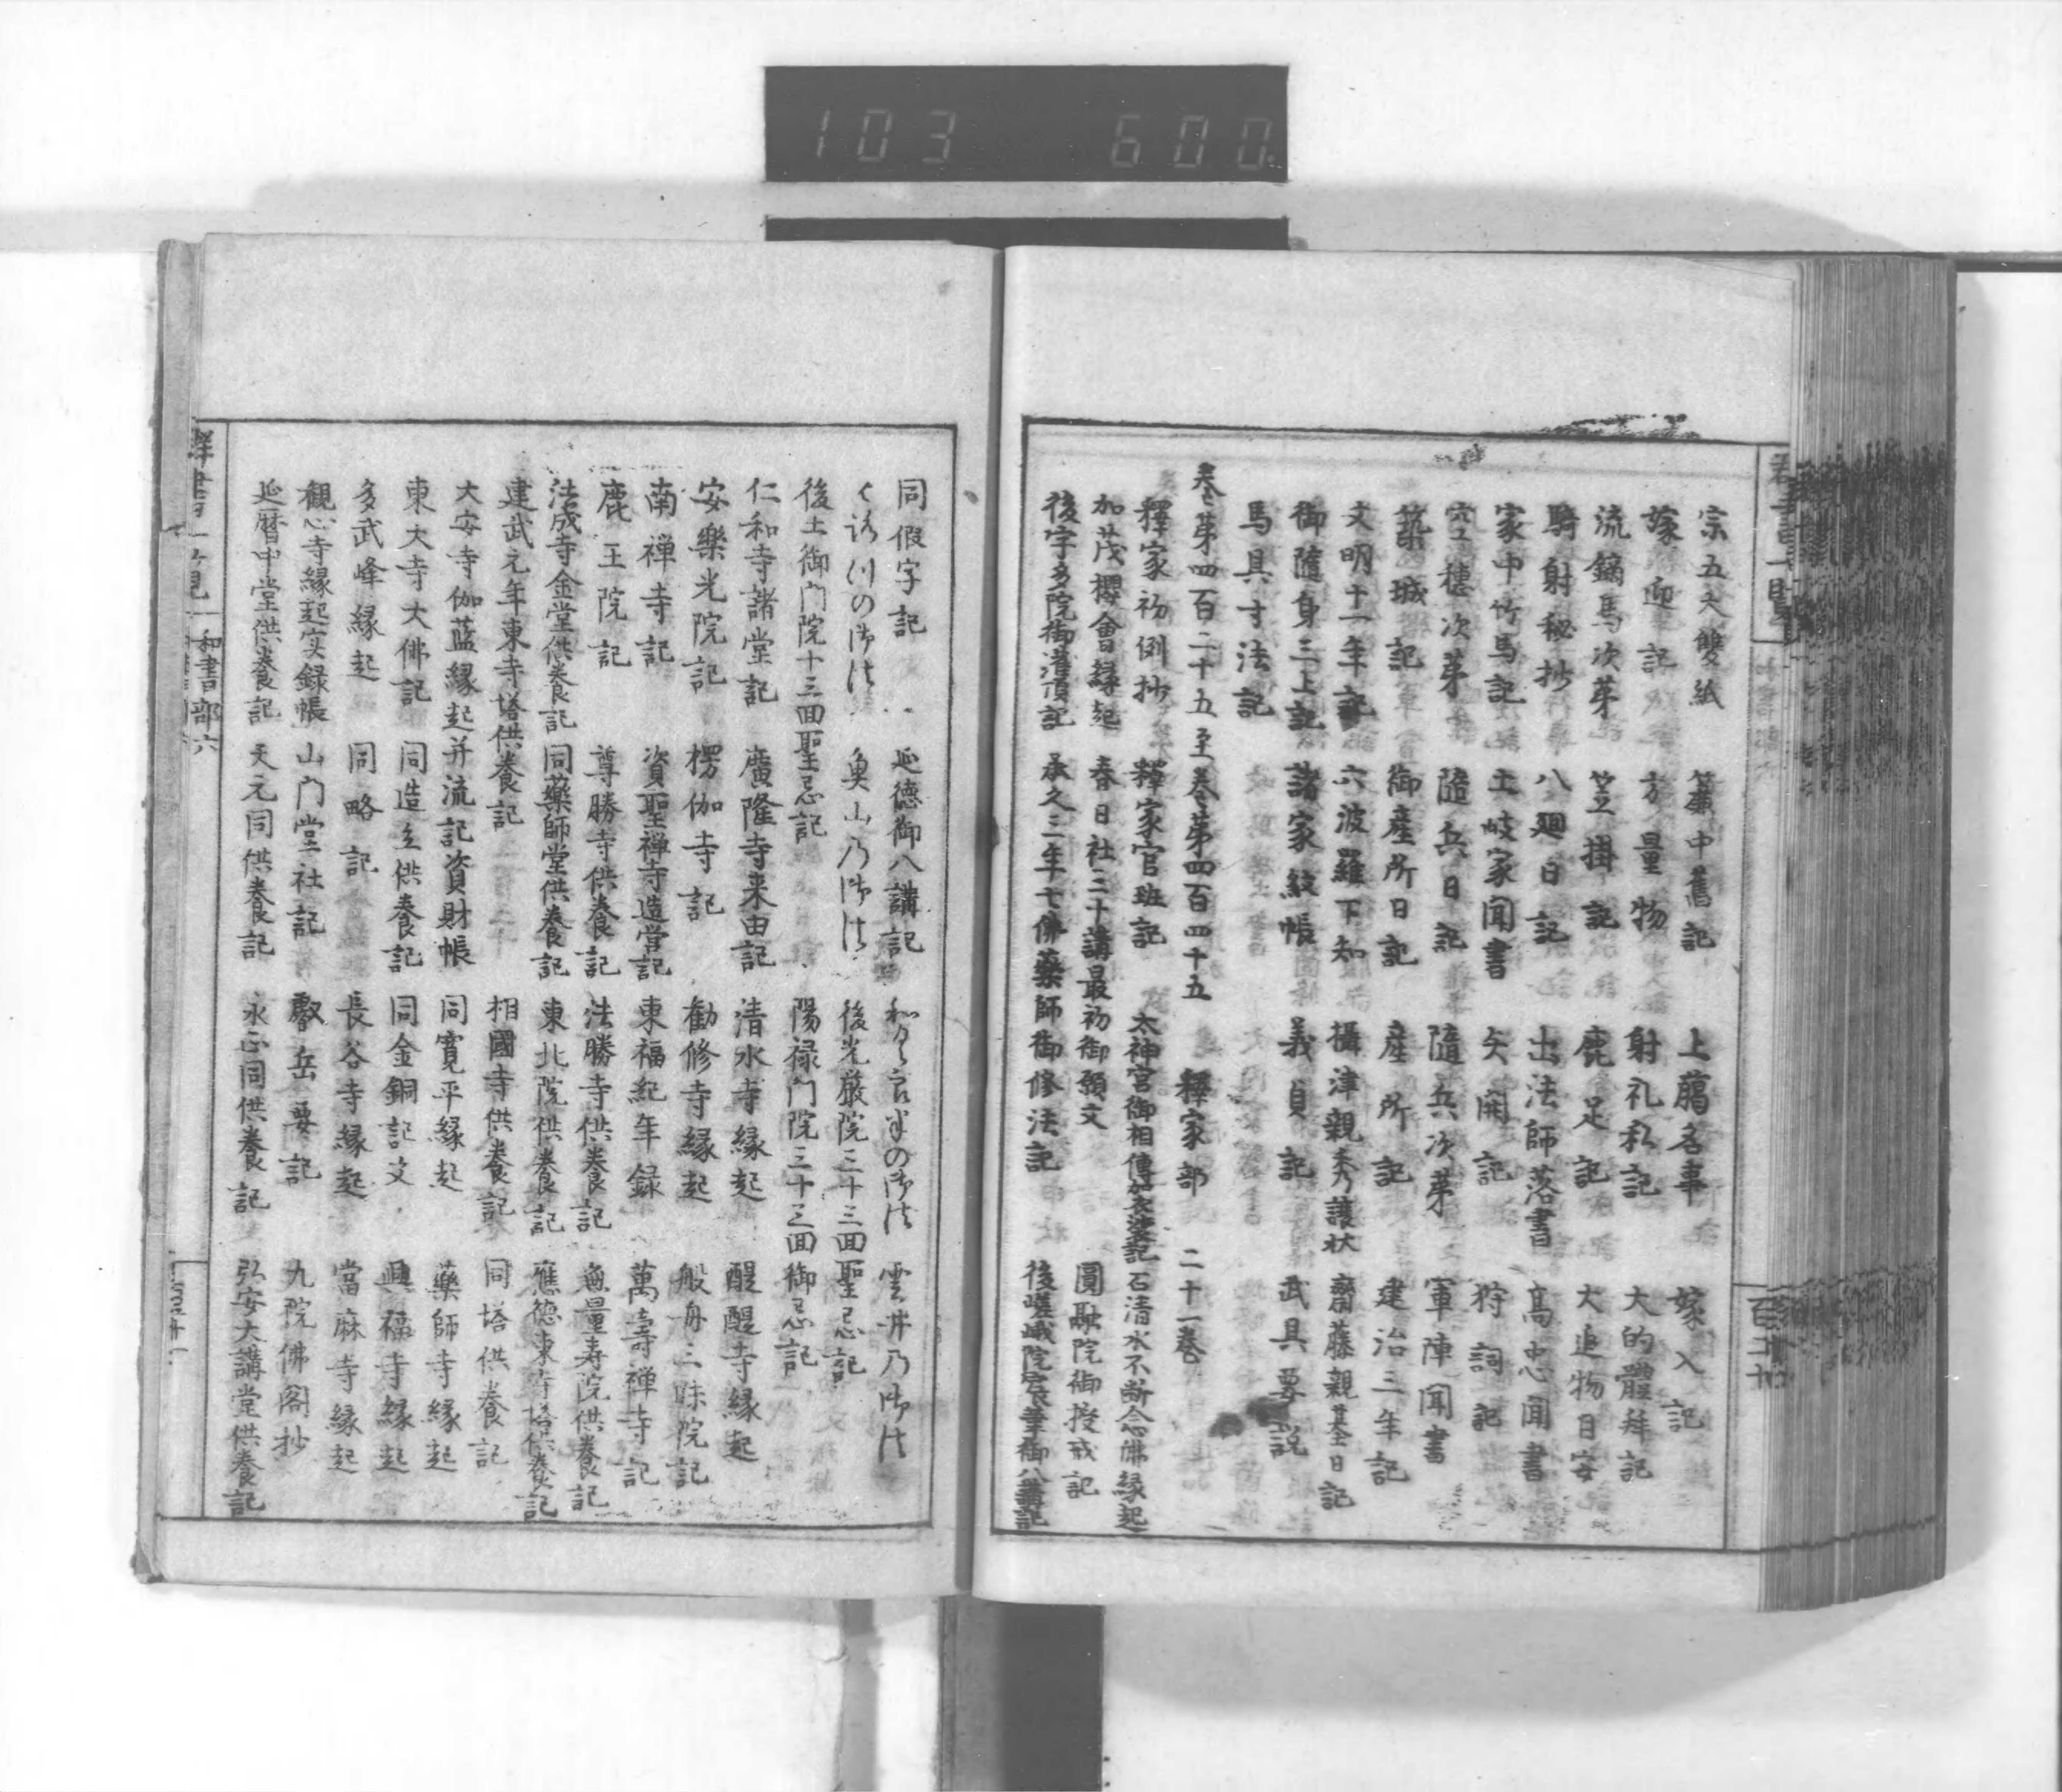 103 600.
宗五大雙紙 簾中舊記 上﨟名事 嫁入記
嫁迎記 方量物 射礼私記 大的體拜記
流鏑馬次苐 笠掛記 鹿足記 犬追物目安
騎射秘抄 八廻日記 出法師落書 高忠聞書
家中竹馬記 土岐家聞書 矢開記 狩詞記
穴太穗次苐 隨兵日記 隨兵次苐 軍陣聞書
築城記 御產所日記 產所記 建治三年記
文明十一年記 六波羅下知 攝津親秀讓狀 齋藤親基日記
御隨身三上記 諸家紋帳 義貞記 武具要說
馬具寸法記
卷苐四百二十五至卷苐四百四十五 釋家部 二十一卷
釋家初例抄 釋家官班記 太神宮御相傳袈裟記 石清水不断念佛縁起
加茂櫻會縁起 春日社三十講最初御願文 圓融院御授戒記
後宇多院御灌頂記 承久三年七佛藥師御修法記 後嵯峨院宸筆御八講記
百二十
同假字記 延德御八講記 雲井乃御法
後光嚴院三十三回聖忌記
後土御門院十三回聖忌記 陽祿門院三十三回御忌記
仁和寺諸堂記 廣隆寺来由記 清水寺縁起 醍醐寺縁起
安樂光院記 楞伽寺記 勸修寺縁起 般舟三昧院記
南禪寺記 資聖禪寺造營記 東福紀年錄 萬壽禪寺記
鹿王院記 尊勝寺供養記 法勝寺供養記 無量寿院供養記
法成寺金堂供養記 同藥師堂供養記 東北院供養記 應德東寺塔供養記
建武元年東寺塔供養記 相國寺供養記 同塔供養記
大安寺伽藍縁起并流記資財帳 同寬平縁起 藥師寺縁起
東大寺大佛記 同造立供養記 同金銅記文 興福寺縁起
多武峰縁起 同略記 長谷寺縁起 當麻寺縁起
觀心寺縁起实録帳 山門堂社記 叡岳要記 九院佛閣抄
延暦中堂供養記 天元同供養記 永正同供養記 弘安大講堂供養記
群書一覧 和書部六